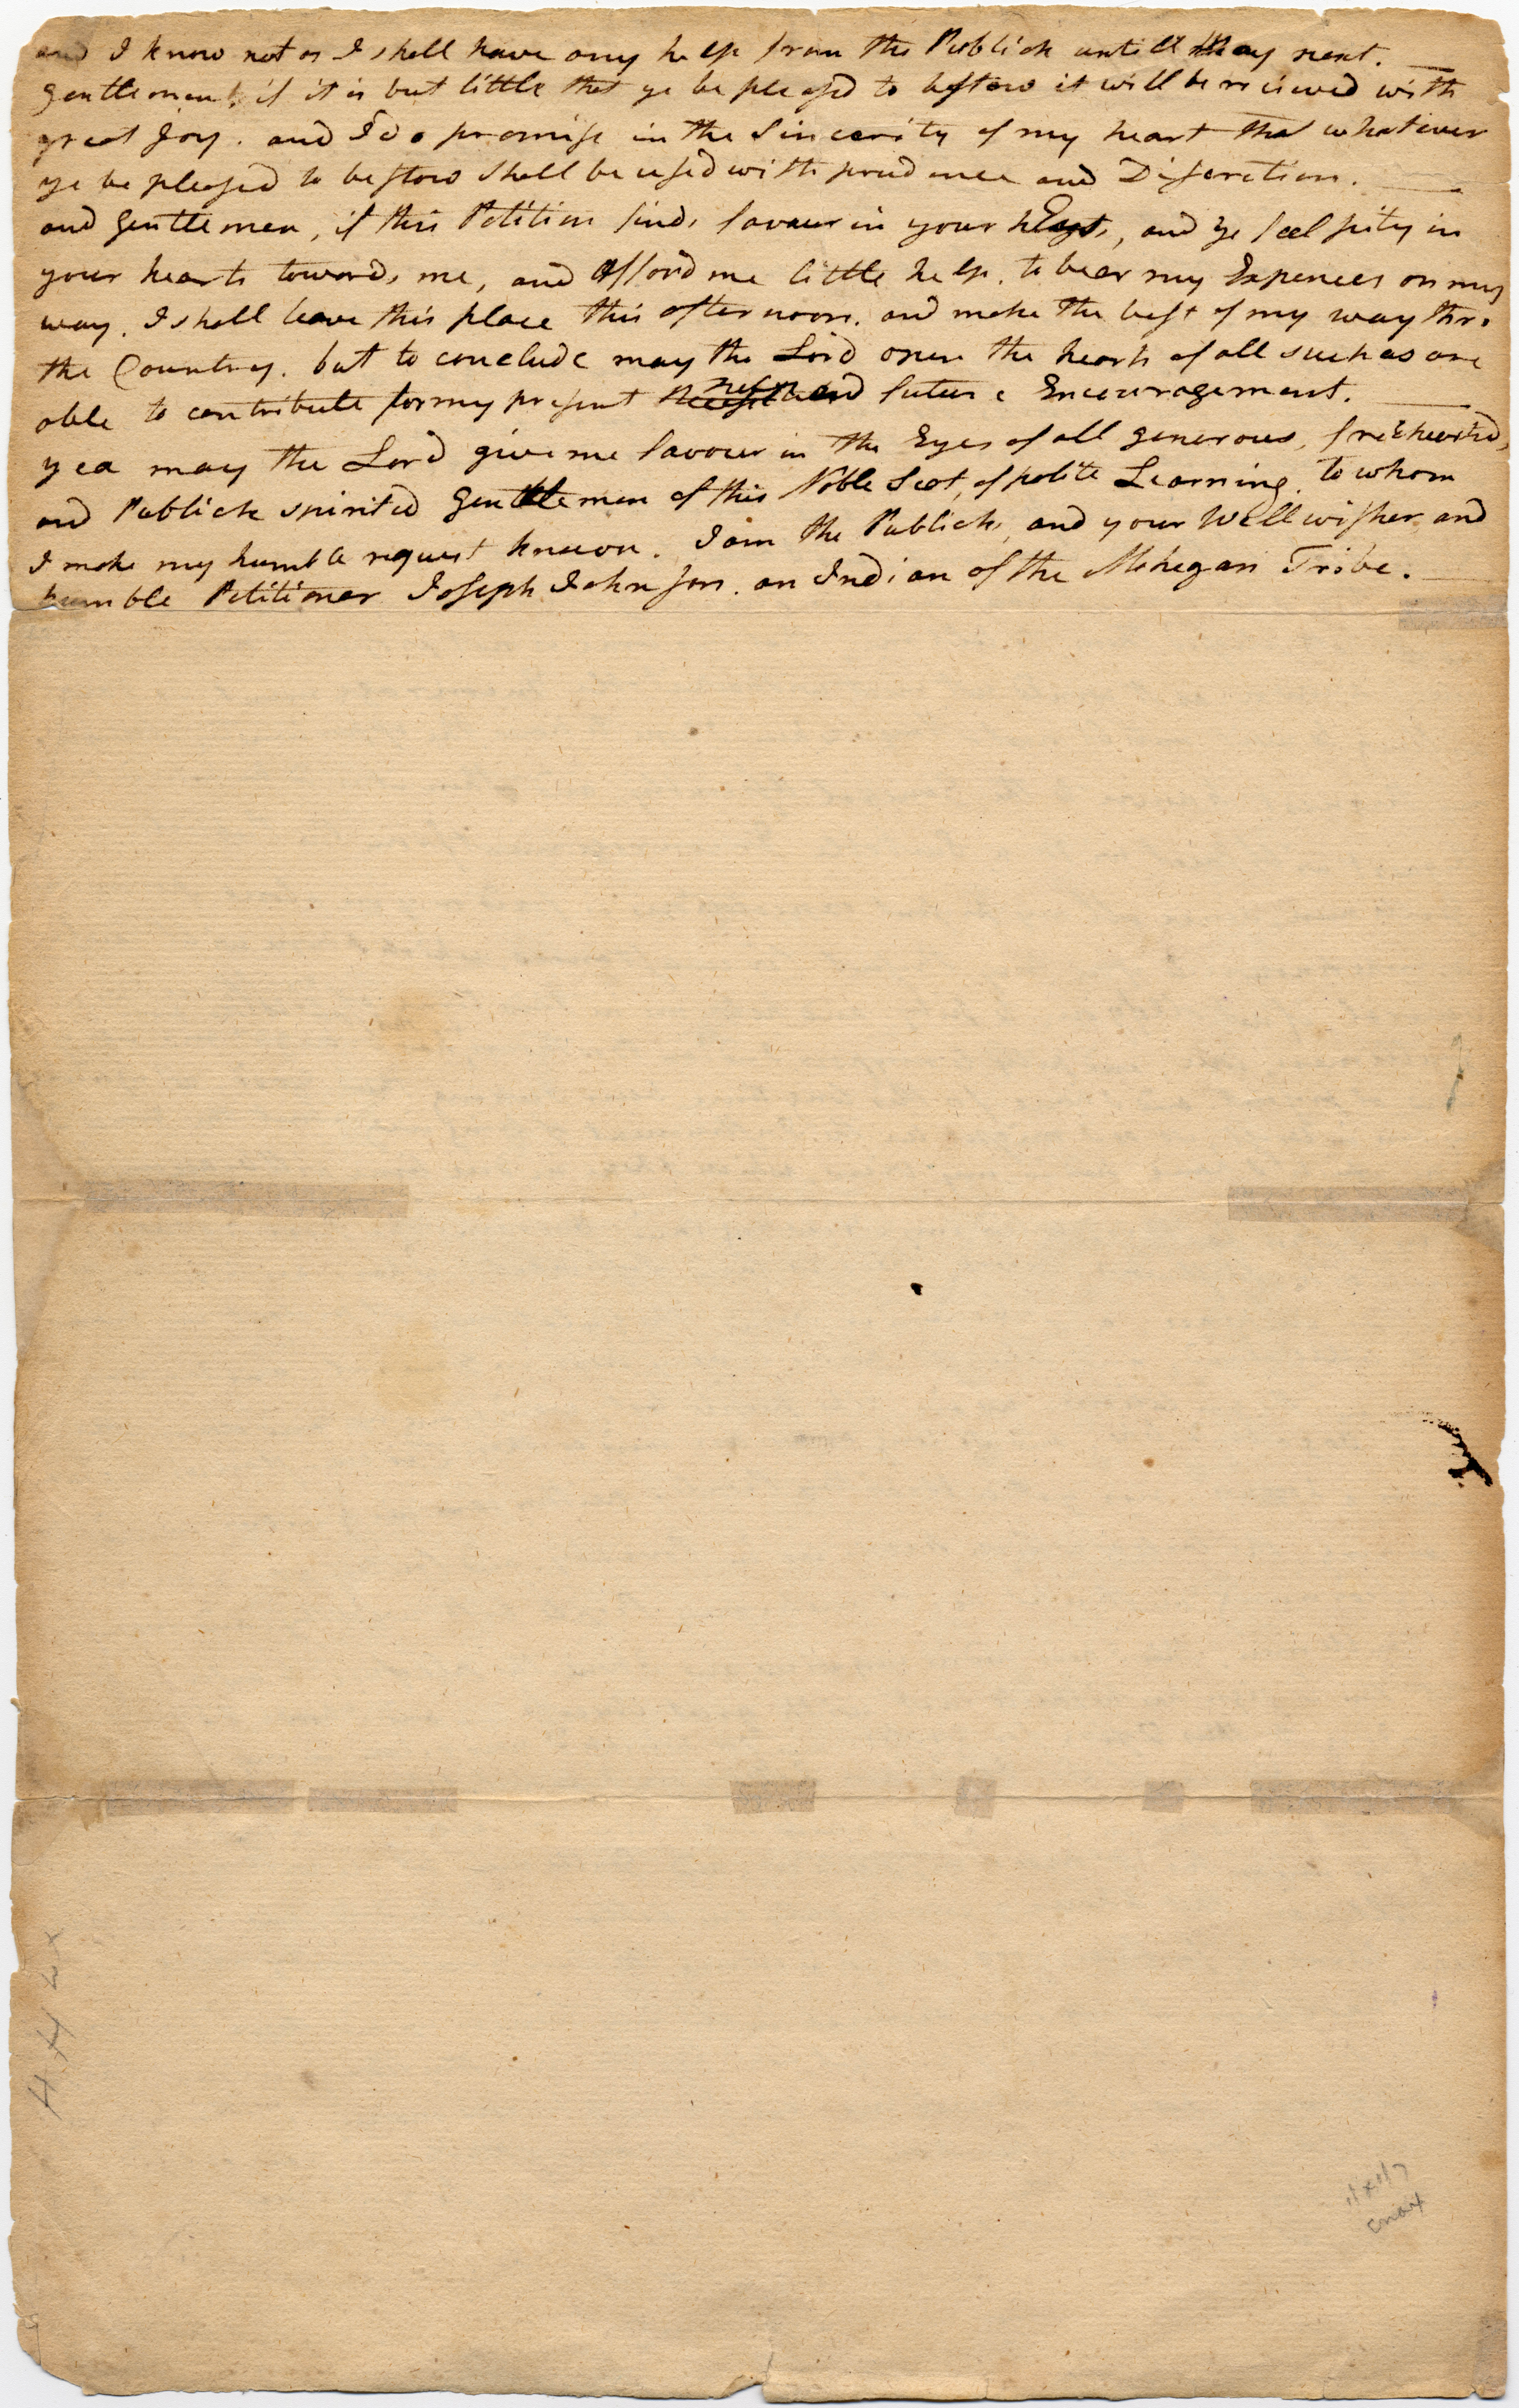 and I know not as I shall have any help from the Publick untill May next.
Gentlemen, if it is but little that ye be pleased to bestow it will be recieved with
great Joy. and I do promise in the Sincerity of my heart that whatever
ye be pleased to bestow Shall be used with prudence and Discretion.
and Gentlemen, if this Petition finds favour in your Eyes, and ye feel pity in
your hearts towards me, and Afford me little help. to bear my Expences on my
way. I shall leave this place this afternoon. and make the best of my way thro
the Country. but to conclude may the Lord open the hearts of all such as are
able to contribute for my present and future Encouragement.
yea may the Lord give me favour in the Eyes of all generous, freehearted,
and Publick spirited Gentlemen of this Noble Seat, of polite Learning. to whom
I make my humble request known. I am the Publicks, and your Wellwisher and
humble Petitioner Joseph Johnson. an Indian of the Mohegan Tribe.